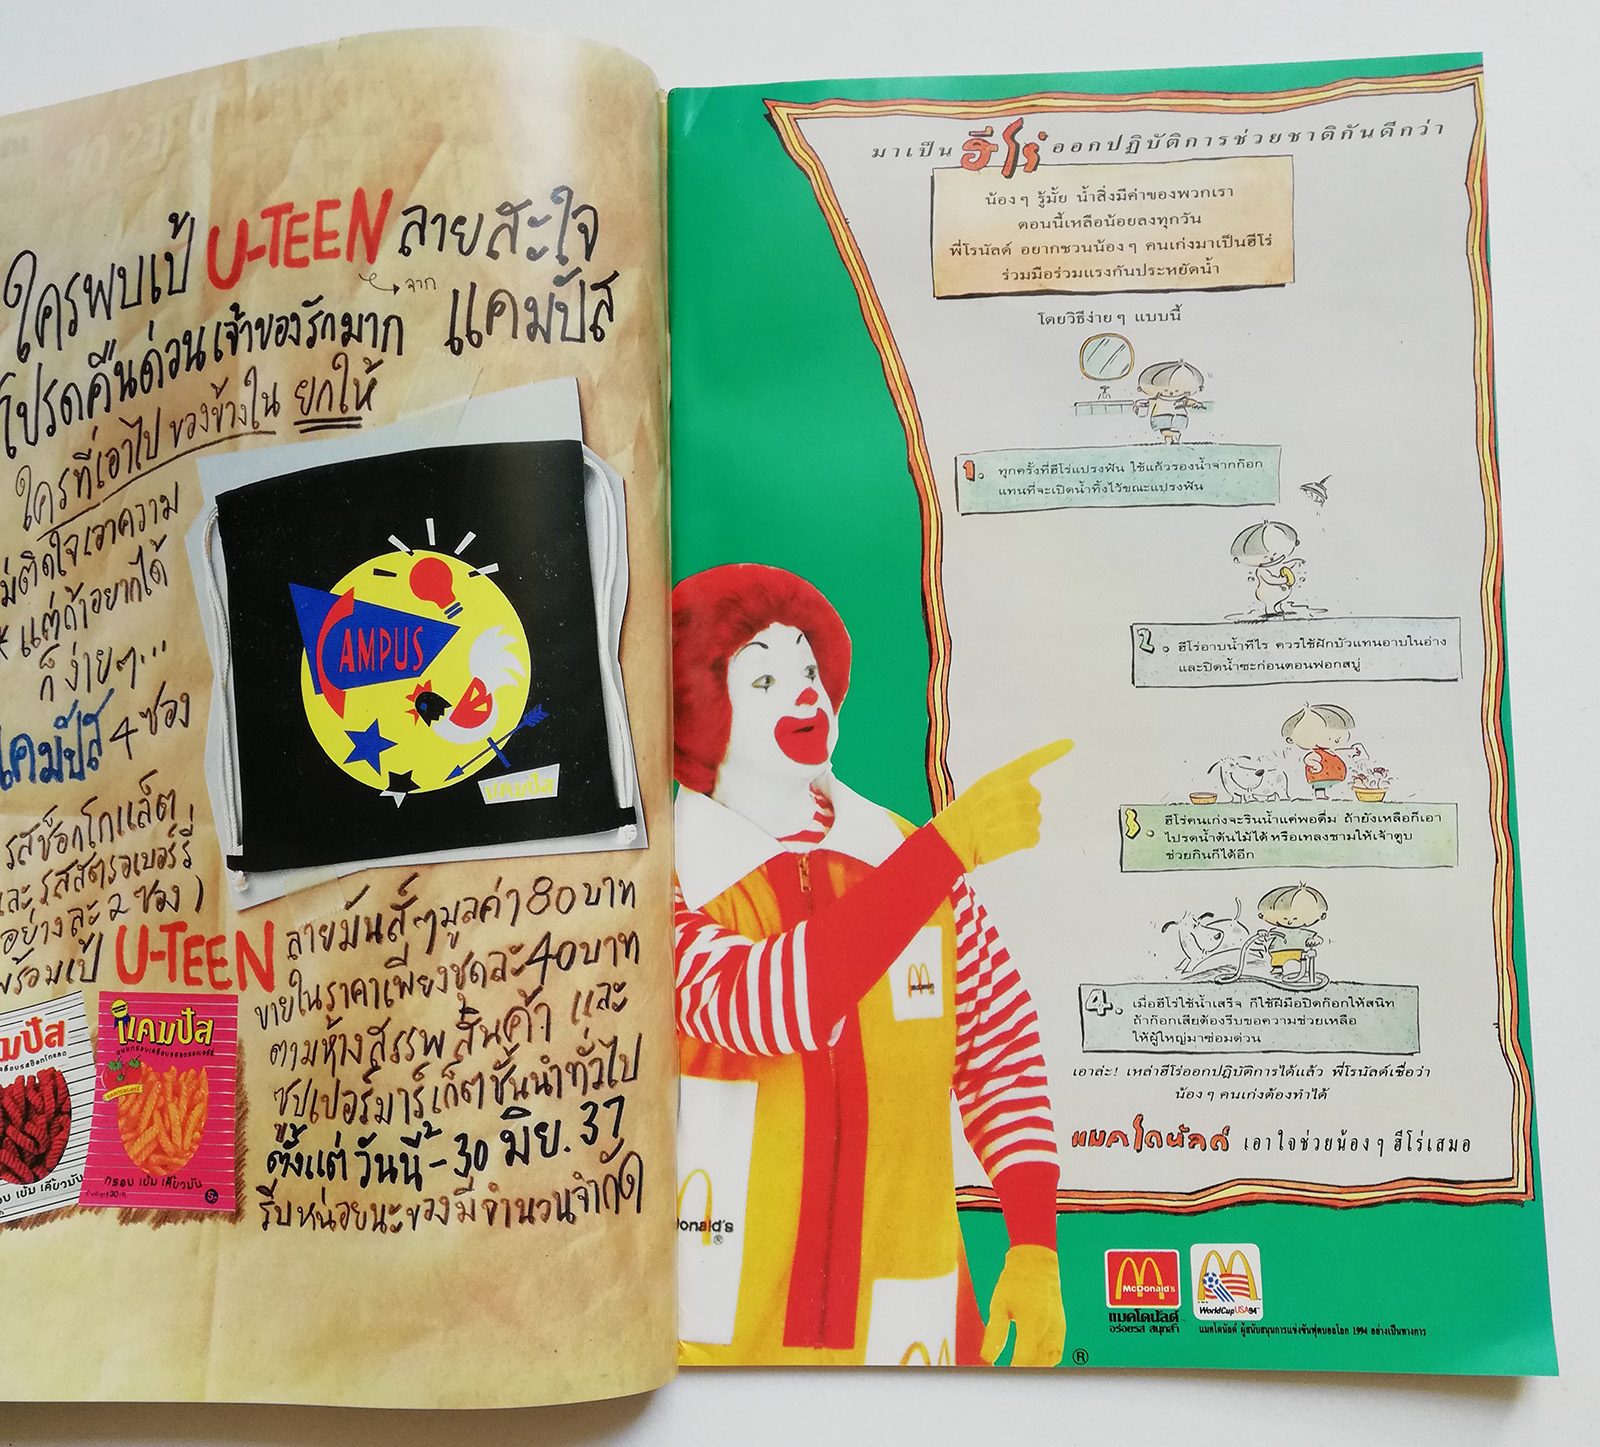 ใครพบเป้ U-TEEN ลายสะใจ
จาก แคมปัส
โปรดคืนด่วนเจ้าของรักมาก
ใครที่เอาไป ของข้างใน ยกให้
ไม่ติดใจเอาความ
* แต่ถ้าอยากได้
ก็ง่ายๆ...
แคมปัส 4 ซอง
รสช็อกโกแล็ต
และรสสตรอเบอร์รี่
อย่างละ 2 ซอง
พร้อมเป้ U-TEEN ลายมันส์ๆ มูลค่า 80 บาท
ขายในราคาเพียงชุดละ 40 บาท
ตามห้างสรรพสินค้า และ
ซูปเปอร์มาร์เก็ตชั้นนำทั่วไป
ตั้งแต่วันนี้ - 30 มิย. 37
รีบหน่อยนะของมีจำนวนจำกัด
CAMPUS
แคมปัส
มปัส
แคมปัส
กรอบ เข้ม เคี้ยวมัน
อบ เข้ม เคี้ยวมัน
มาเป็น ฮีโร่ ออกปฏิบัติการช่วยชาติกันดีกว่า
น้องๆ รู้มั้ย น้ำสิ่งมีค่าของพวกเรา
ตอนนี้เหลือน้อยลงทุกวัน
พี่โรนัลด์ อยากชวนน้องๆ คนเก่งมาเป็นฮีโร่
ร่วมมือร่วมแรงกันประหยัดน้ำ
โดยวิธีง่ายๆ แบบนี้
1. ทุกครั้งที่ฮีโร่แปรงฟัน ใช้แก้วรองน้ำจากก๊อก
แทนที่จะเปิดน้ำทิ้งไว้ขณะแปรงฟัน
2. ฮีโร่อาบน้ำทีไร ควรใช้ฝักบัวแทนอาบในอ่าง
และปิดน้ำซะก่อนตอนฟอกสบู่
3. ฮีโร่คนเก่งจะรินน้ำแค่พอดื่ม ถ้ายังเหลือก็เอา
ไปรดน้ำต้นไม้ได้ หรือเทลงชามให้เจ้าตูบ
ช่วยกินก็ได้อีก
4. เมื่อฮีโร่ใช้น้ำเสร็จ ก็ใช้ฝีมือปิดก๊อกให้สนิท
ถ้าก๊อกเสียต้องรีบขอความช่วยเหลือ
ให้ผู้ใหญ่มาซ่อมด่วน
เอาล่ะ! เหล่าฮีโร่ออกปฏิบัติการได้แล้ว พี่โรนัลด์เชื่อว่า
น้องๆ คนเก่งต้องทำได้
แมคโดนัลด์ เอาใจช่วยน้องๆ ฮีโร่เสมอ
McDonald's
onald's
®
McDonald's
แมคโดนัลด์
อร่อยรส สนุกล้ำ
WorldCupUSA94
แมคโดนัลด์ ผู้สนับสนุนการแข่งขันฟุตบอลโลก 1994 อย่างเป็นทางการ
®